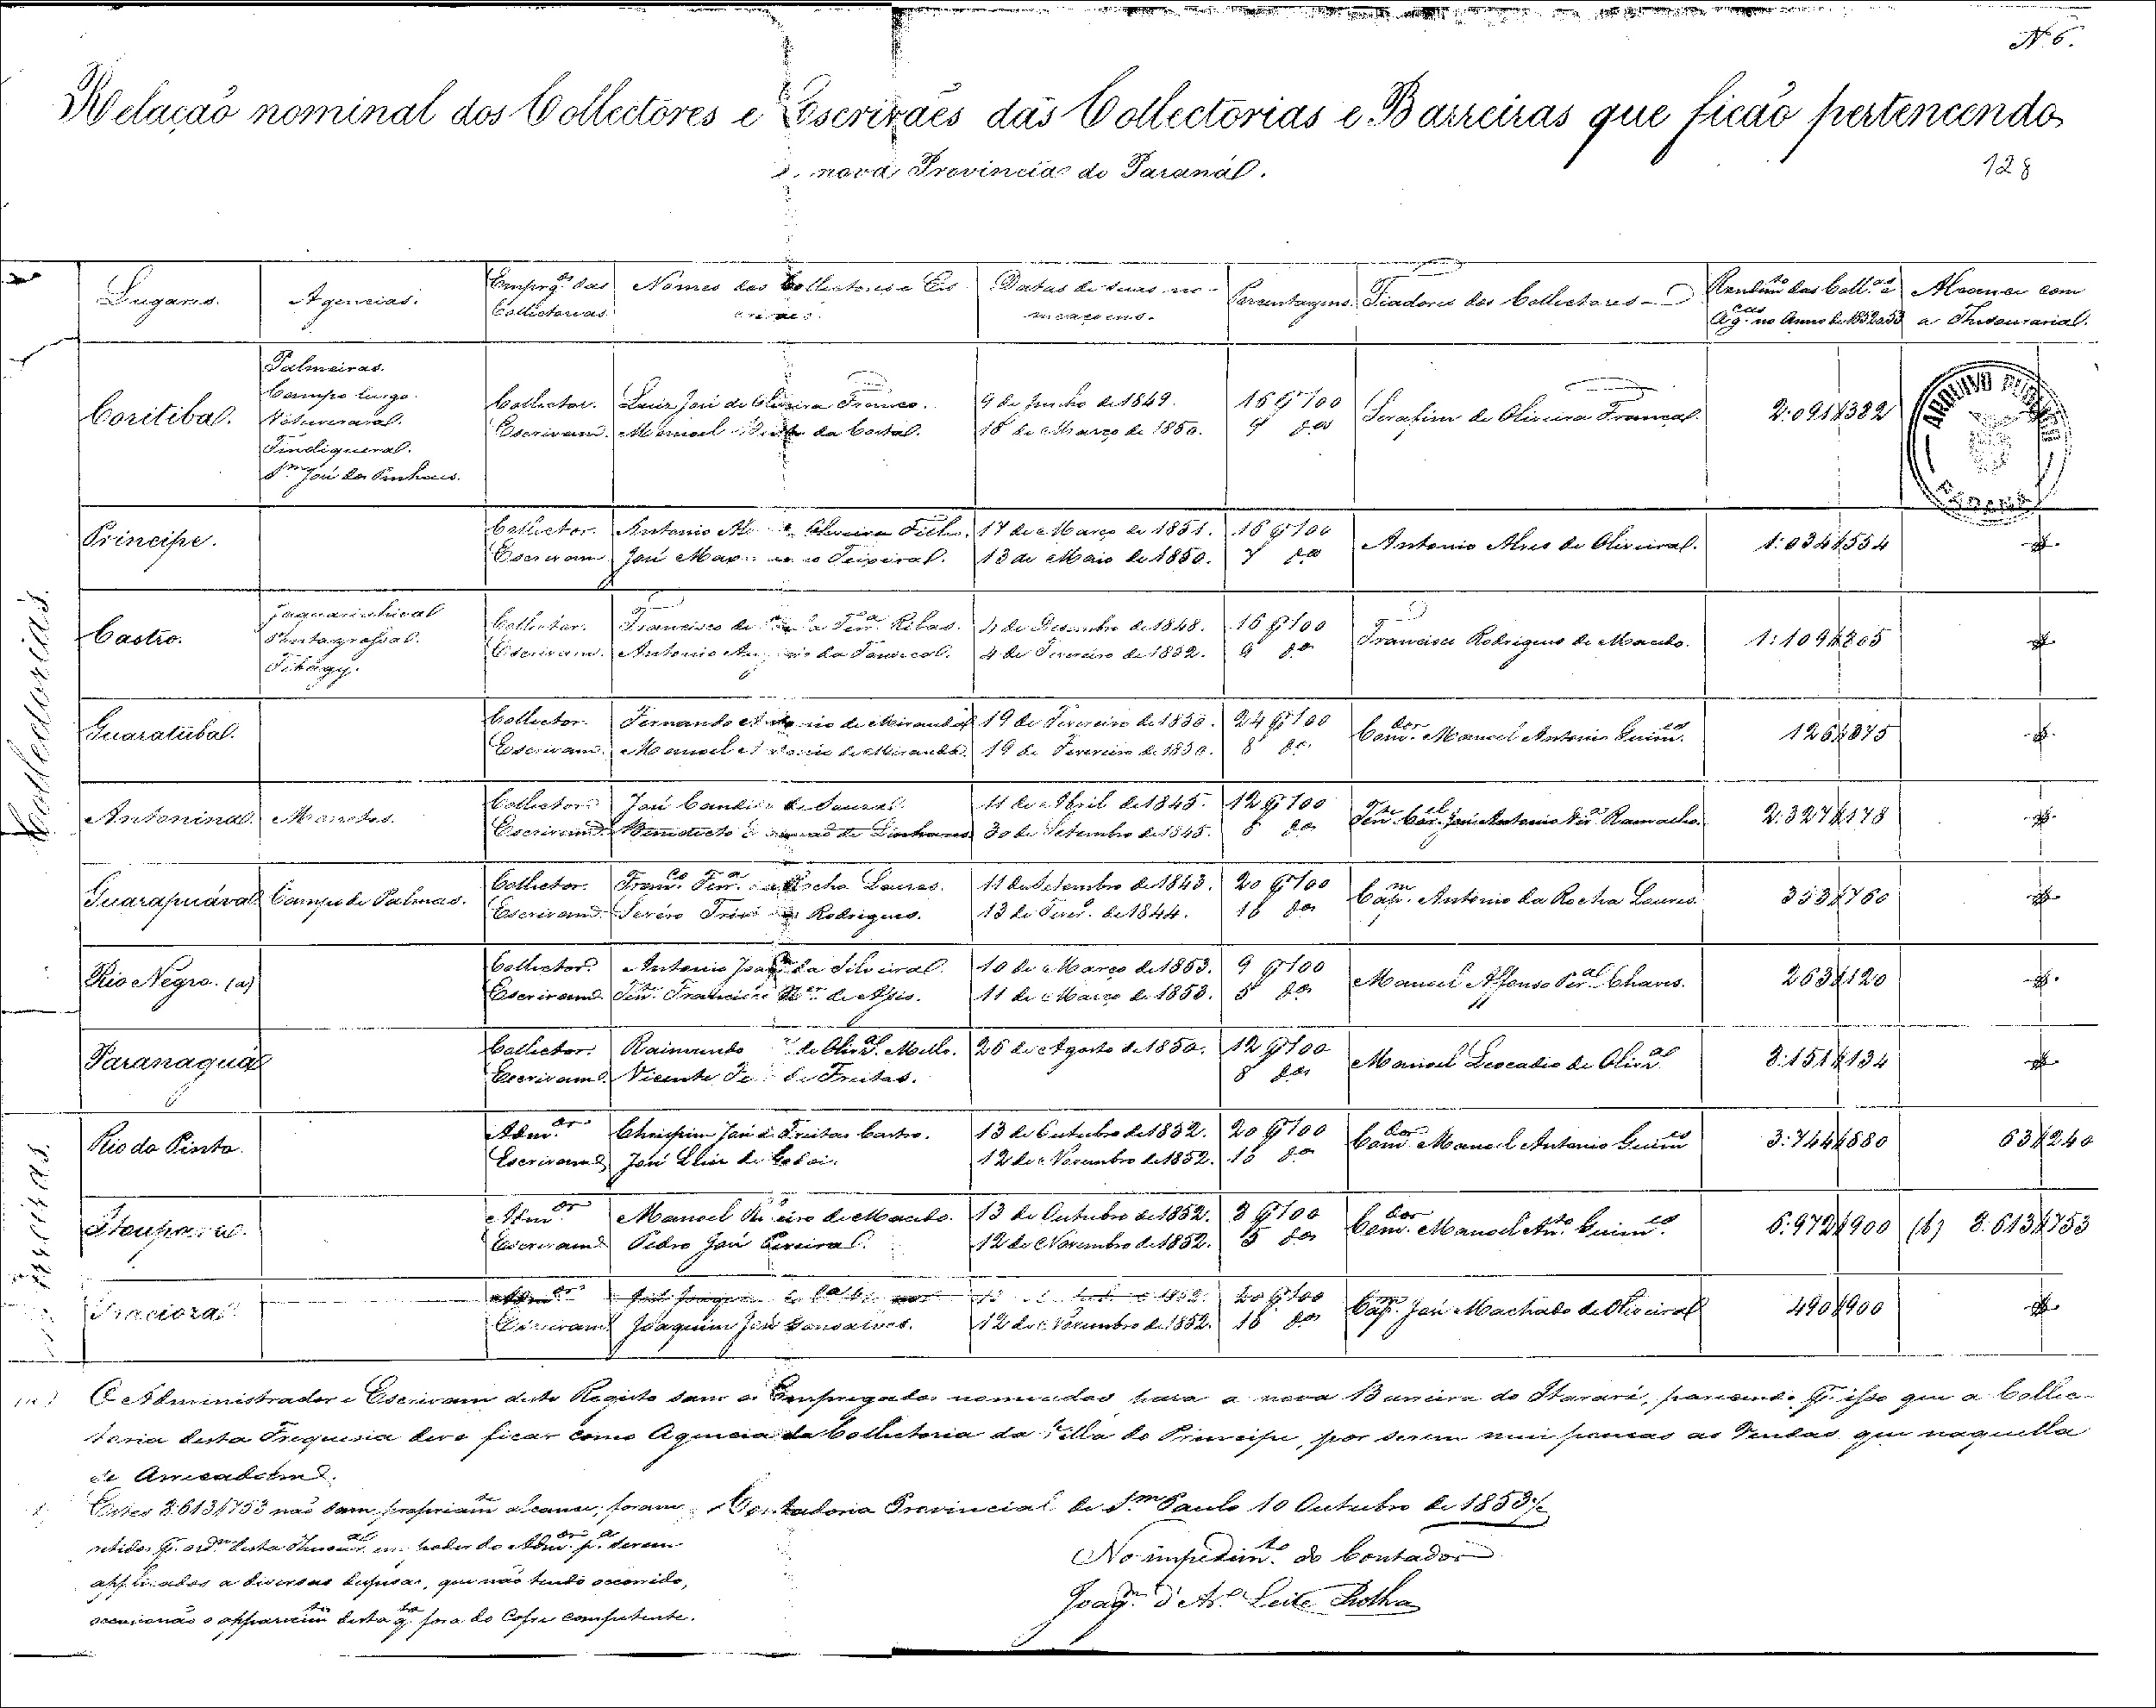 N. 6.
Relação nominal dos Collectores e Escrivães das Collectorias e Barreiras que ficão pertencendo
a nova Provincia do Paraná.
128
Lugares. Agencias. Empreg.os das Collectorias. Nomes dos Collectores e Escrivães. Datas de suas nomeaçoens. Porcentagens. Fiadores dos Collectores. Rendim.to das Coll.as e Ag.cas no Anno de 1852 a 53 Alcance com a Thesouraria.
Collectorias.
Coritiba. Palmeiras.
Campo largo.
Votuverava.
Tindiquera.
S.m José dos Pinhaes.
Collector. Luiz José de Oliveira Franco. 9 de Junho de 1849. 16 p 100 Serafim de Oliveira França. 2:091$382
Escrivam. Manoel da Costa. 18 de Março de 1850. 9 do
ARQUIVO PUBLICO PARANÁ
Principe. Collector. Antonio Oliveira Filho. 17 de Março de 1851. 16 p 100 Antonio Alves de Oliveira. 1:034$554 $
Escrivam José Teixeira. 13 de Maio de 1850. 7 do
Castro. Jaguariahiva
Pontagrossa.
Tibagy.
Collector. Francisco de Ribas. 4 de Dezembro de 1848. 16 p 100 Francisco Rodrigues de Macedo. 1:109$205 $
Escrivam. Antonio da Fonseca. 4 de Fevereiro de 1852. 9 do
Guaratuba. Collector. Fernando Antonio de Miranda 19 de Fevereiro de 1850. 24 p 100 Com.dor Manoel Antonio Guim.es 126$875 $
Escrivam. Manoel Antonio de Miranda. 19 de Fevereiro de 1850. 8 do
Antonina. Morretes. Collector. José Candido de Souza. 11 de Abril de 1845. 12 p 100 Ten.te Cor.el José Antonio Ramalho. 2:327$178 $
Escrivam. Benedicto de Linhares 30 de Setembro de 1845. 8 do
Guarapuáva. Campo de Palmas. Collector. Fran.co Fer.a da Rocha Loures. 11 de Setembro de 1843. 20 p 100 Cap.m Antonio da Rocha Loures. 353$760 $
Escrivam. Rodrigues. 13 de Fever. de 1844. 16 do
Rio Negro. (a) Collector. Antonio da Silveira. 10 de Março de 1853. 9 p 100 Manoel Affonso Per.a Chaves. 263$120 $
Escrivam. Ten.te Francisco de Assis. 11 de Março de 1853. 5 do
Paranaguá Collector. Raimundo de Oliv.a Mello. 26 de Agosto de 1850. 12 p 100 Manoel Leocadio de Oliv.a 3:151$134 $
Escrivam. Vicente de Freitas. 8 do
Barreiras.
Rio do Pinto. Adm.or Chrispim José de Freitas Castro. 13 de Outubro de 1852. 20 p 100 Com.dor Manoel Antonio Guim.es 3:744$880 63$240
Escrivam. José 12 de Novembro de 1852. 16 do
Adm.or Manoel Ribeiro de Macedo. 13 de Outubro de 1852. 8 p 100 Com.dor Manoel Ant.o Guim.es 6:972$900 (b) 8:613$753
Escrivam. Pedro José Pereira. 12 de Novembro de 1852. 5 do
Graciosa. Adm.or 1852. 20 p 100 Cap.m José Machado de Oliveira 490$900 $
Escrivam. Joaquim José Gonsalves. 12 de Novembro de 1852. 16 do
(a) O Administrador e Escrivam deste Registo sam os Empregados nomeados para a nova Barreira do Itararé, parecendo p.r isso que a Collec-
toria desta Freguesia deve ficar como Agencia da Collectoria da Villa do Principe, por serem mui poucas as Rendas que naquella
se Arrecadam.
Estes 8:613$753 não sam propriam.te alcance; foram
retidos p.r ord.m desta Thesour.a em poder do Adm.or p.a serem
applicados a diversas despesas, que não tendo occorrido,
desta q.ta fora do Cofre competente.
Contadoria Provincial de S.m Paulo 10 Outubro de 1853.
No impedim.to do Contador
Joaq.m d'A. Leite